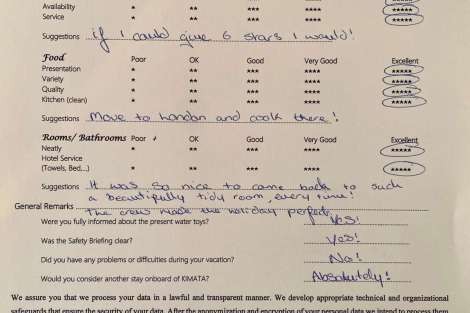 Availability * ** *** **** *****
Service * ** *** **** *****
Suggestions if I could give 6 stars I would!
Food Poor OK Good Very Good Excellent
Presentation * ** *** **** *****
Variety * ** *** **** *****
Quality * ** *** **** *****
Kitchen (clean) * ** *** **** *****
Suggestions Move to London and cook there!
Rooms/ Bathrooms Poor OK Good Very Good Excellent
Neatly * ** *** **** *****
Hotel Service
(Towels, Bed...) * ** *** **** *****
Suggestions It was so nice to come back to such
a beautifully tidy room, every time!
General Remarks The crew made the holiday perfect.
Were you fully informed about the present water toys? Yes!
Was the Safety Briefing clear? Yes!
Did you have any problems or difficulties during your vacation? No!
Would you consider another stay onboard of KIMATA? Absolutely!
We assure you that we process your data in a lawful and transparent manner. We develop appropriate technical and organizational
safeguards that ensure the security of your data. After the anonymization and encryption of your personal data we intend to process them